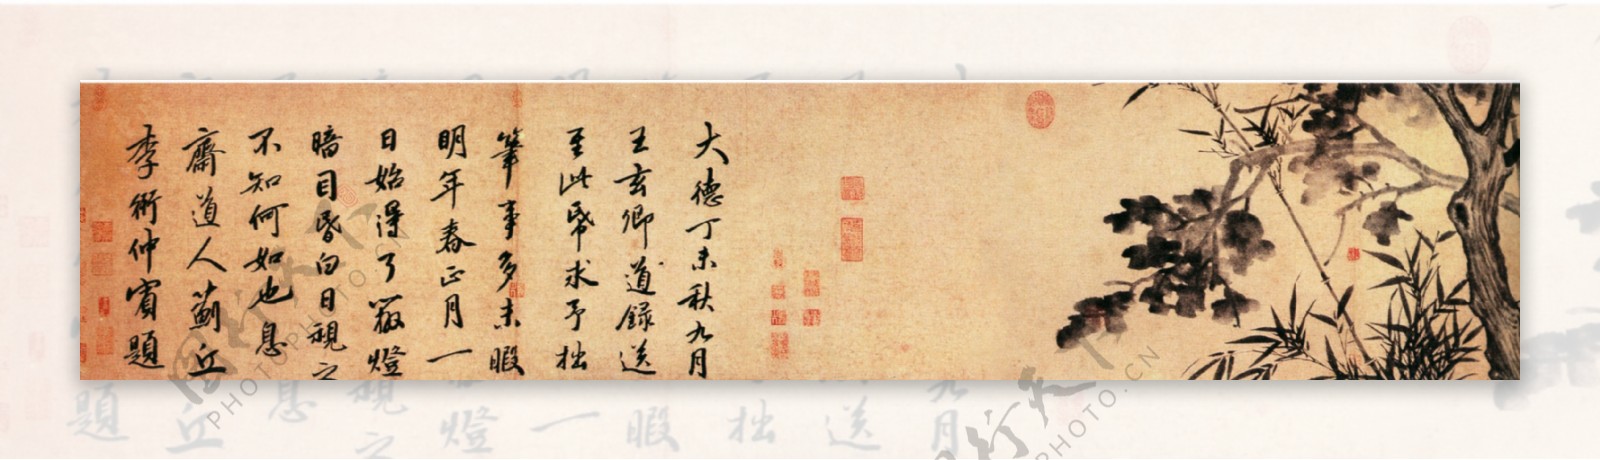 大德丁未秋九月
王玄卿道錄送
至此帋求予拙
筆事多未暇
明年春正月一
日始得了燈
暗目昏白日視之
不知何如也息
齋道人薊丘
李衎仲賓題
图行天下
PHOTOPHOTO.CN
图行天下
PHOTOPHOTO.CN